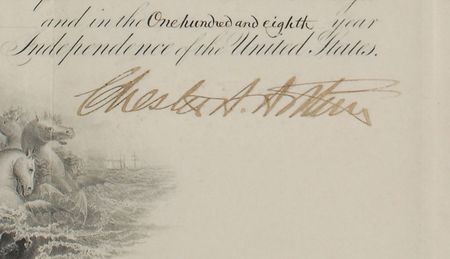 and in the One hundred and eighth year
Independence of the United States.
Chester A. Arthur